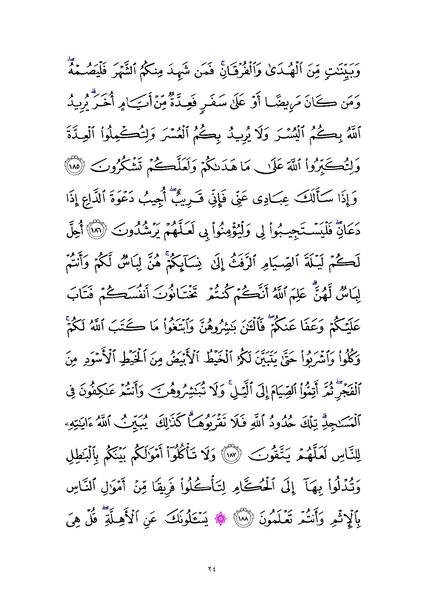 وَبَيِّنَٰتٍ مِّنَ ٱلْهُدَىٰ وَٱلْفُرْقَانِ ۚ فَمَن شَهِدَ مِنكُمُ ٱلشَّهْرَ فَلْيَصُمْهُ ۖ
وَمَن كَانَ مَرِيضًا أَوْ عَلَىٰ سَفَرٍ فَعِدَّةٌ مِّنْ أَيَّامٍ أُخَرَ ۗ يُرِيدُ
ٱللَّهُ بِكُمُ ٱلْيُسْرَ وَلَا يُرِيدُ بِكُمُ ٱلْعُسْرَ وَلِتُكْمِلُوا۟ ٱلْعِدَّةَ
وَلِتُكَبِّرُوا۟ ٱللَّهَ عَلَىٰ مَا هَدَىٰكُمْ وَلَعَلَّكُمْ تَشْكُرُونَ ١٨٥
وَإِذَا سَأَلَكَ عِبَادِى عَنِّى فَإِنِّى قَرِيبٌ ۖ أُجِيبُ دَعْوَةَ ٱلدَّاعِ إِذَا
دَعَانِ ۖ فَلْيَسْتَجِيبُوا۟ لِى وَلْيُؤْمِنُوا۟ بِى لَعَلَّهُمْ يَرْشُدُونَ ١٨٦ أُحِلَّ
لَكُمْ لَيْلَةَ ٱلصِّيَامِ ٱلرَّفَثُ إِلَىٰ نِسَآئِكُمْ ۚ هُنَّ لِبَاسٌ لَّكُمْ وَأَنتُمْ
لِبَاسٌ لَّهُنَّ ۗ عَلِمَ ٱللَّهُ أَنَّكُمْ كُنتُمْ تَخْتَانُونَ أَنفُسَكُمْ فَتَابَ
عَلَيْكُمْ وَعَفَا عَنكُمْ ۖ فَٱلْـَٰٔنَ بَٰشِرُوهُنَّ وَٱبْتَغُوا۟ مَا كَتَبَ ٱللَّهُ لَكُمْ ۚ
وَكُلُوا۟ وَٱشْرَبُوا۟ حَتَّىٰ يَتَبَيَّنَ لَكُمُ ٱلْخَيْطُ ٱلْأَبْيَضُ مِنَ ٱلْخَيْطِ ٱلْأَسْوَدِ مِنَ
ٱلْفَجْرِ ۖ ثُمَّ أَتِمُّوا۟ ٱلصِّيَامَ إِلَى ٱلَّيْلِ ۚ وَلَا تُبَٰشِرُوهُنَّ وَأَنتُمْ عَٰكِفُونَ فِى
ٱلْمَسَٰجِدِ ۗ تِلْكَ حُدُودُ ٱللَّهِ فَلَا تَقْرَبُوهَا ۗ كَذَٰلِكَ يُبَيِّنُ ٱللَّهُ ءَايَٰتِهِۦ
لِلنَّاسِ لَعَلَّهُمْ يَتَّقُونَ ١٨٧ وَلَا تَأْكُلُوٓا۟ أَمْوَٰلَكُم بَيْنَكُم بِٱلْبَٰطِلِ
وَتُدْلُوا۟ بِهَآ إِلَى ٱلْحُكَّامِ لِتَأْكُلُوا۟ فَرِيقًا مِّنْ أَمْوَٰلِ ٱلنَّاسِ
بِٱلْإِثْمِ وَأَنتُمْ تَعْلَمُونَ ١٨٨ ۞ يَسْـَٔلُونَكَ عَنِ ٱلْأَهِلَّةِ ۖ قُلْ هِىَ
٢٤